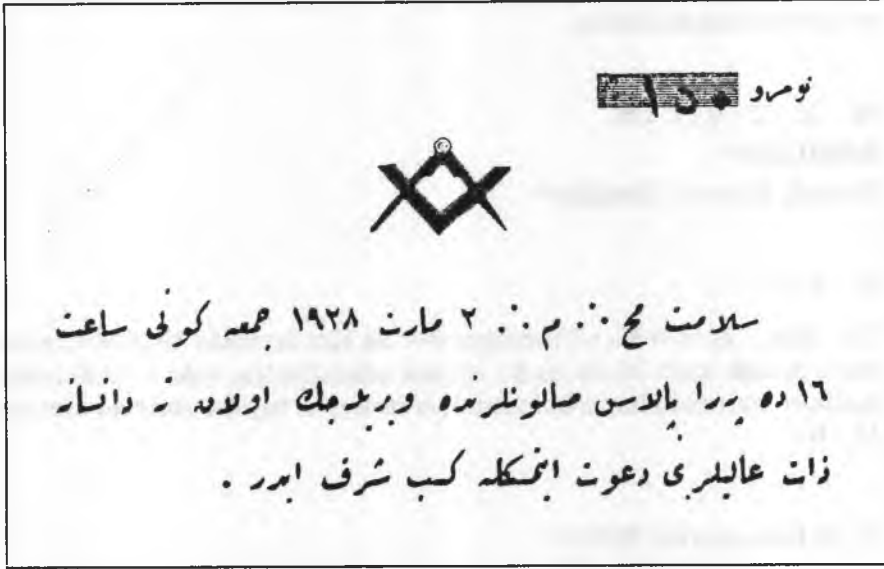 نومرو ١٥٠
سلامت مح ∴ م ∴ ٢ مارت ١٩٢٨ جمعه كونی ساعت
١٦ ده پرا پالاس صالونلرنده ويريله جك اولان ته دانسانه
ذات عاليلرى دعوت ايتمكله كسب شرف ايدر .